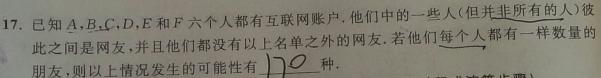 17. 已知 A,B,C,D,E 和 F 六个人都有互联网账户.他们中的一些人(但并非所有的人)彼
此之间是网友,并且他们都没有以上名单之外的网友.若他们每个人都有一样数量的
朋友,则以上情况发生的可能性有 170 种.